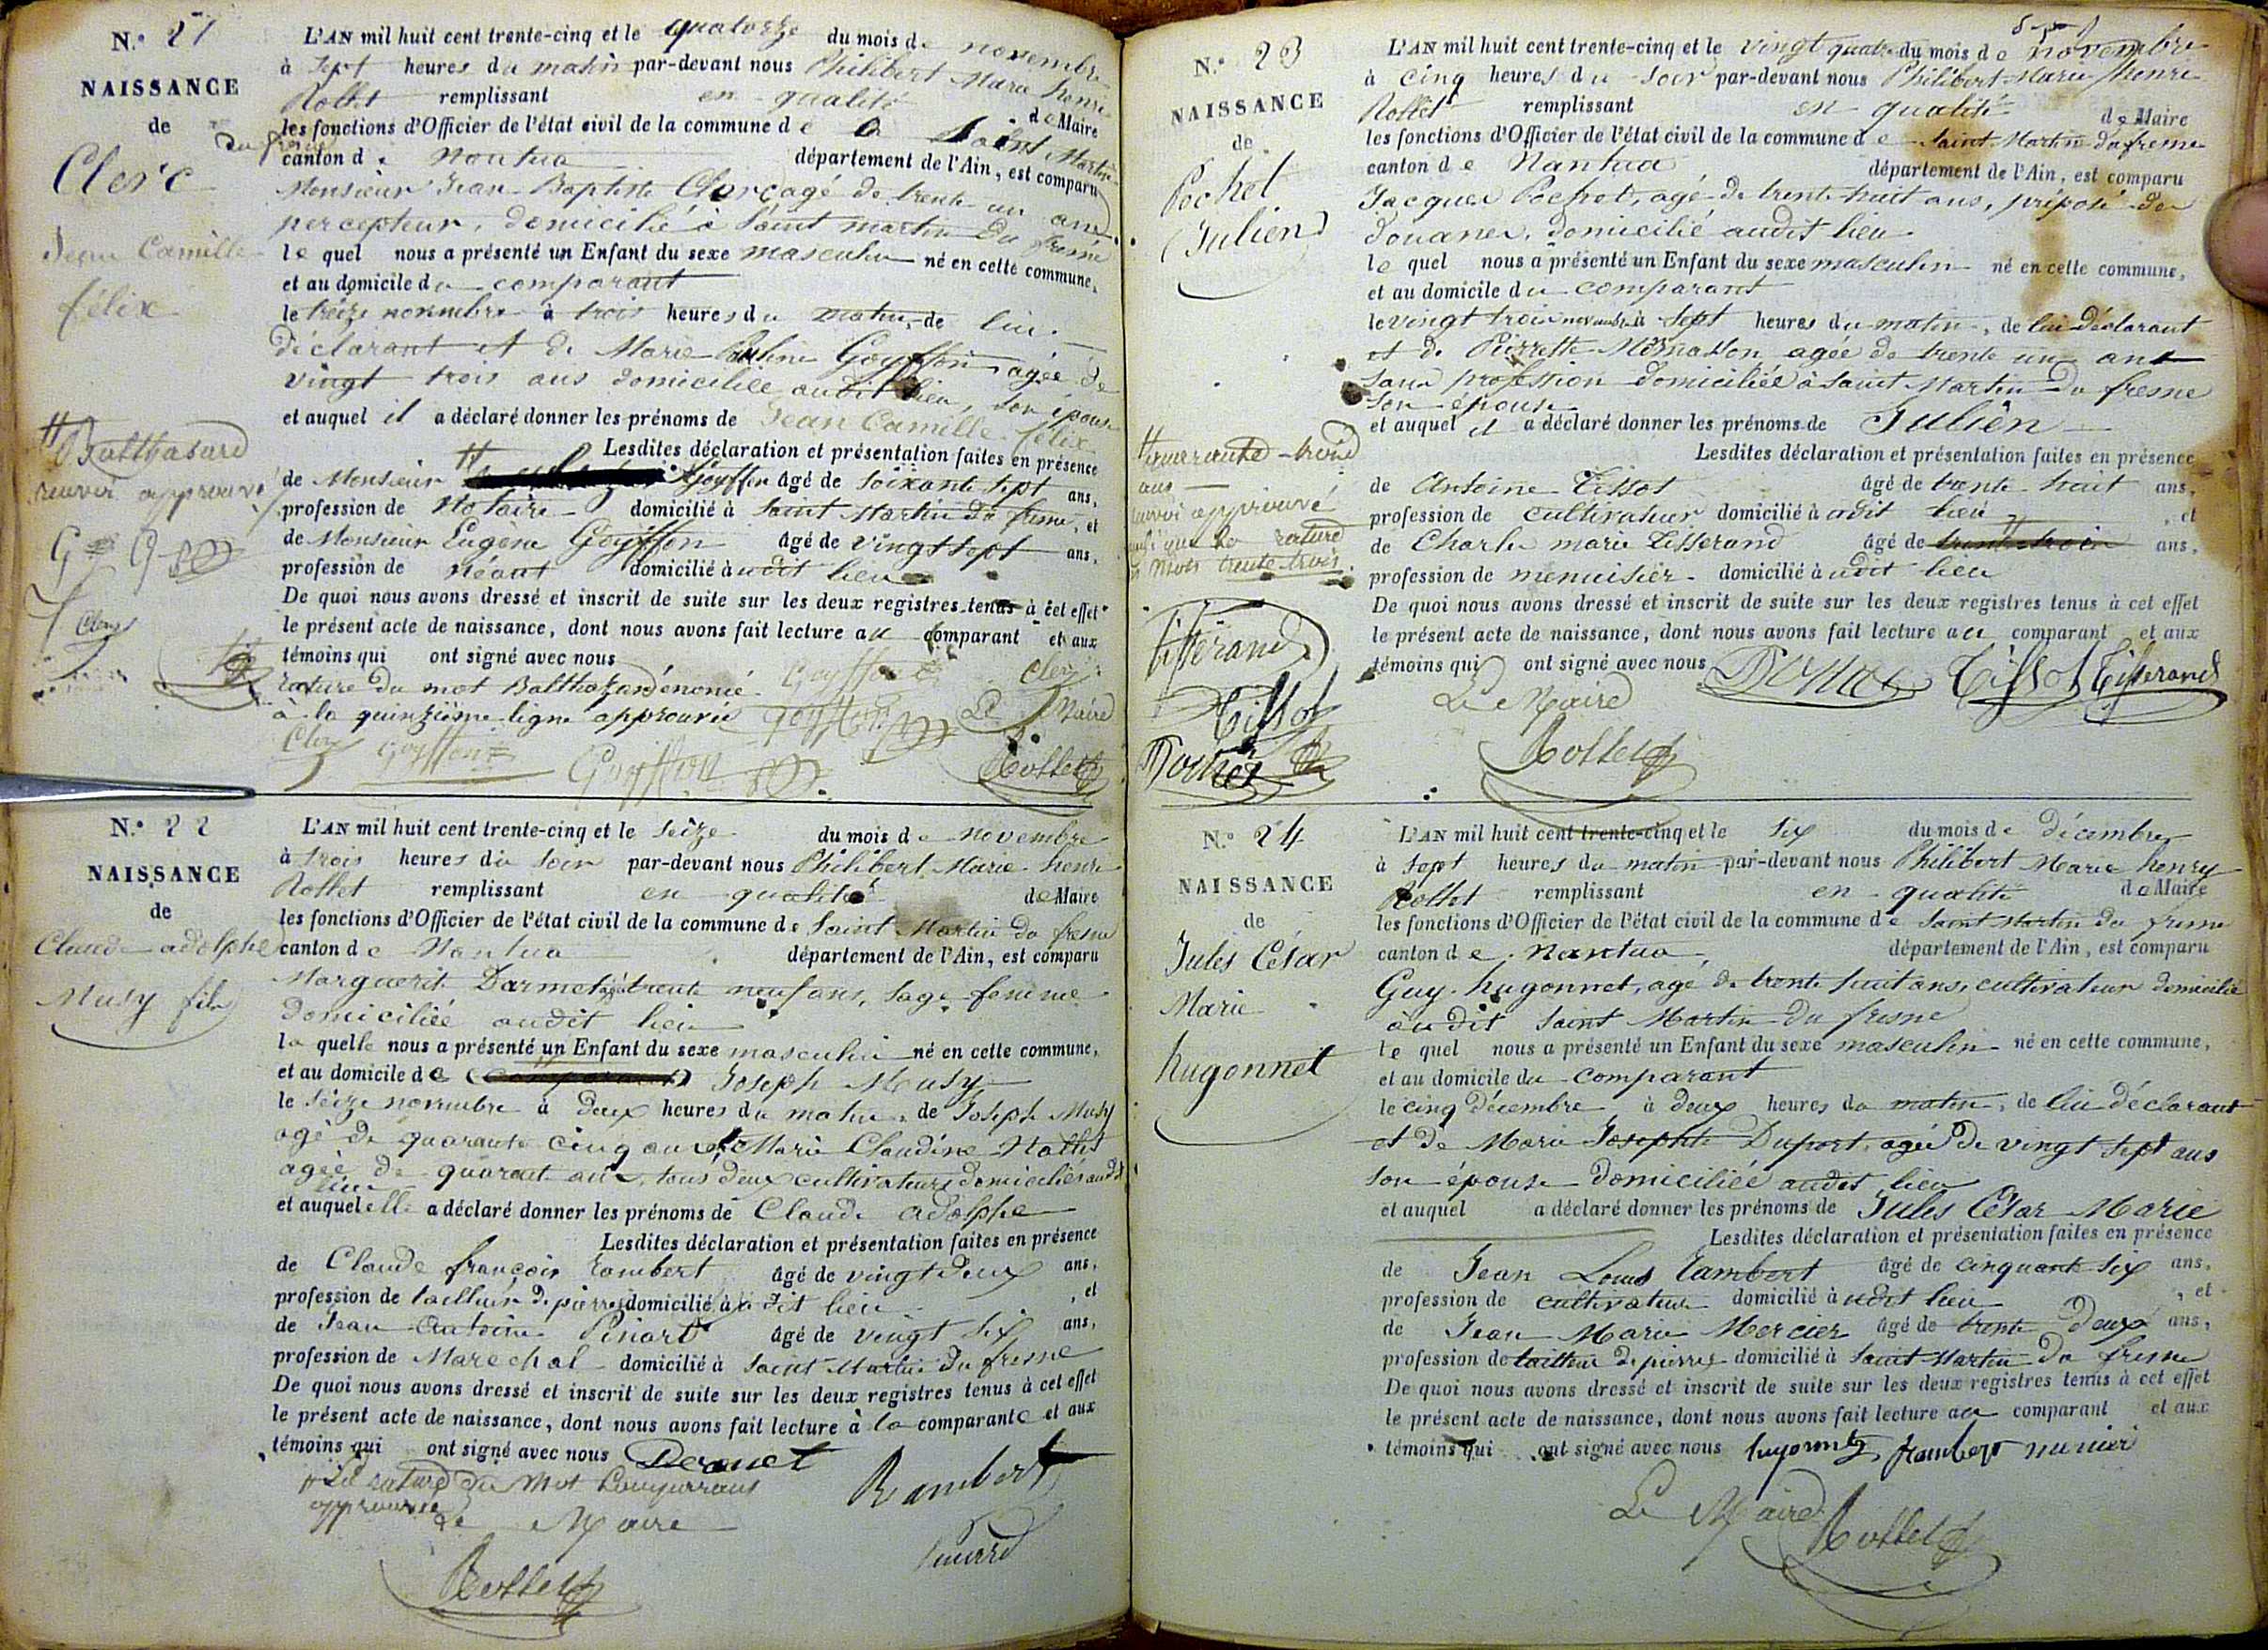 N.° 21
NAISSANCE
de
Clerc
Jean Camille
félix
L'AN mil huit cent trente-cinq et le quatorze du mois de novembre
à sept heures du matin par-devant nous Philibert Marie henri
Rollet remplissant en qualité de Maire
les fonctions d'Officier de l'état civil de la commune de Saint Martin
du fresne
canton de Nantua département de l'Ain, est comparu
Monsieur Jean-Baptiste Clerc agé de trente un ans
percepteur, domicilié à Saint martin du fresne
le quel nous a présenté un Enfant du sexe masculin né en cette commune,
et au domicile du comparant
le treize novembre à trois heures du matin, de lui
déclarant et de Marie Pauline Goyffon agée de
vingt trois ans domiciliée audit lieu, son épouse
et auquel il a déclaré donner les prénoms de Jean Camille félix
Lesdites déclaration et présentation faites en présence
de Monsieur # Goyffon âgé de soixante sept ans,
profession de Notaire domicilié à Saint Martin du fresne, et
de Monsieur Eugène Goyffon âgé de vingt sept ans,
profession de Néant domicilié à udit lieu
De quoi nous avons dressé et inscrit de suite sur les deux registres tenus à cet effet
le présent acte de naissance, dont nous avons fait lecture au comparant et aux
témoins qui ont signé avec nous
rature du mot Balthazard énoncé
à la quinzième ligne approuvée
Goyffon Clerc
Goyffon Le Maire
Clerc Goyffon Goyffon Rollet
# Balthasard
renvoi approuvé
G G
Clerc
N.° 22
NAISSANCE
de
Claude adolphe
Musy fils
L'AN mil huit cent trente-cinq et le seize du mois de novembre
à trois heures du soir par-devant nous Philibert Marie henri
Rollet remplissant en qualité de Maire
les fonctions d'Officier de l'état civil de la commune de Saint Martin du fresne
canton de Nantua département de l'Ain, est comparu
Marguerite Darmet agé trente neuf ans, sage femme
domiciliée audit lieu
la quelle nous a présenté un Enfant du sexe masculin né en cette commune,
et au domicile de comparant Joseph Musy
le seize novembre à deux heures du matin, de Joseph Musy
agé de quarante cinq ans et Marie Claudine
agée de quarant ans, tous deux cultivateurs domiciliés audit
lieu
et auquel elle a déclaré donner les prénoms de Claude adolphe
Lesdites déclaration et présentation faites en présence
de Claude françois rambert âgé de vingt deux ans,
profession de tailleur de pierres domicilié à udit lieu, et
de Jean Antoine Pinard âgé de vingt six ans,
profession de Marechal domicilié à Saint Martin du fresne
De quoi nous avons dressé et inscrit de suite sur les deux registres tenus à cet effet
le présent acte de naissance, dont nous avons fait lecture à la comparante et aux
témoins qui ont signé avec nous
la rature du mot comparant
approuvée
Rambert
Le Maire
Pinard
Rollet
N.° 23
NAISSANCE
de
Pochet
Julien
L'AN mil huit cent trente-cinq et le vingt quatre du mois de novembre
à cinq heures du soir par-devant nous Philibert Marie henri
Rollet remplissant en qualité de Maire
les fonctions d'Officier de l'état civil de la commune de Saint Martin du fresne
canton de Nantua département de l'Ain, est comparu
Jacques Pochet, agé de trente huit ans, préposé des
douanes, domicilié audit lieu
le quel nous a présenté un Enfant du sexe masculin né en cette commune,
et au domicile du comparant
le vingt trois novembre à sept heures du matin, de lui Déclarant
et de Pierrette agée de trente un ans
sans profession domiciliée à Saint Martin du fresne
son épouse
et auquel il a déclaré donner les prénoms de Julien
Lesdites déclaration et présentation faites en présence
de Antoine Tissot âgé de trente huit ans,
profession de cultivateur domicilié à udit lieu, et
de Charles marie Tisserand âgé de # trente trois ans,
profession de menuisier domicilié à udit lieu
De quoi nous avons dressé et inscrit de suite sur les deux registres tenus à cet effet
le présent acte de naissance, dont nous avons fait lecture au comparant et aux
témoins qui ont signé avec nous Tissot Tisserand
Le Maire
Rollet
# quarante trois
ans
renvoi approuvé
ainsi que la rature
des mots trente trois.
Tisserand
Tissot
Pochet
N.° 24
NAISSANCE
de
Jules César
Marie
hugonnet
L'AN mil huit cent trente-cinq et le six du mois de décembre
à sept heures du matin par-devant nous Philibert Marie henry
Rollet remplissant en qualité de Maire
les fonctions d'Officier de l'état civil de la commune de Saint Martin du fresne
canton de Nantua, département de l'Ain, est comparu
Guy hugonnet, agé de trente huit ans, cultivateur domicilié
audit Saint Martin du fresne
le quel nous a présenté un Enfant du sexe masculin né en cette commune,
et au domicile du comparant
le cinq décembre à deux heures du matin, de lui déclarant
et de Marie Josephte Duport, agée de vingt sept ans
son épouse domiciliée audit lieu
et auquel a déclaré donner les prénoms de Jules César Marie
Lesdites déclaration et présentation faites en présence
de Jean Louis Rambert âgé de cinquante six ans,
profession de cultivateur domicilié à udit lieu, et
de Jean Marie Mercier âgé de trente deux ans,
profession de tailleur de pierres domicilié à Saint Martin du fresne
De quoi nous avons dressé et inscrit de suite sur les deux registres tenus à cet effet
le présent acte de naissance, dont nous avons fait lecture au comparant et aux
témoins qui ont signé avec nous
Le Maire Rollet